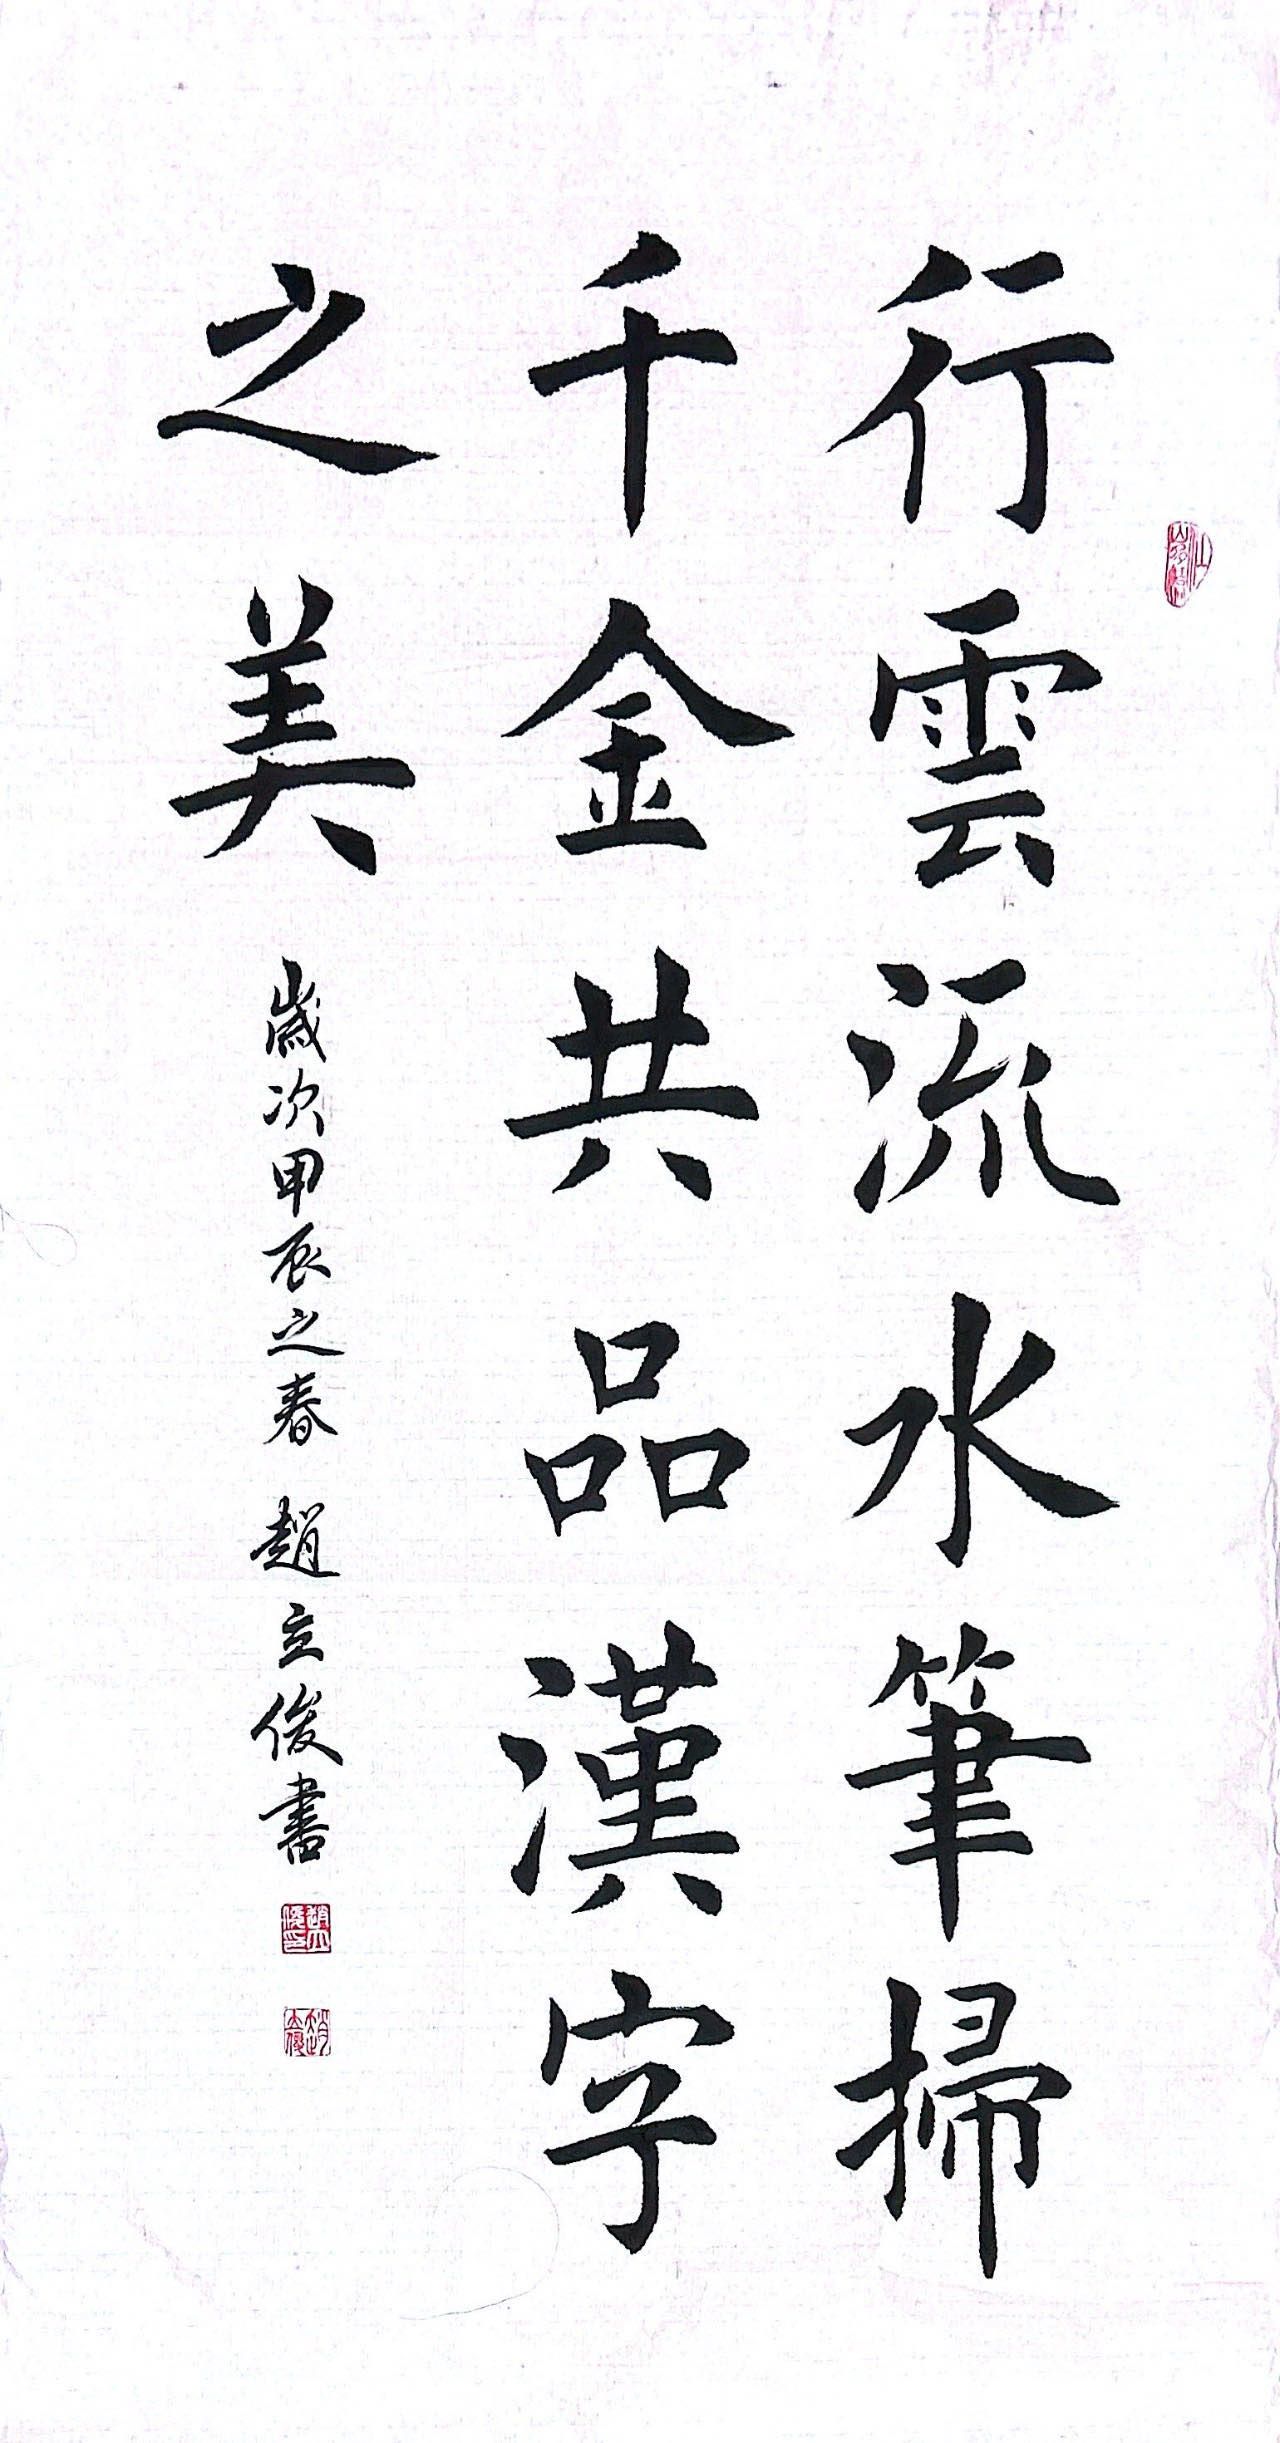 行雲流水筆掃
千金共品漢字
之美
歲次甲辰之春 趙立俊書